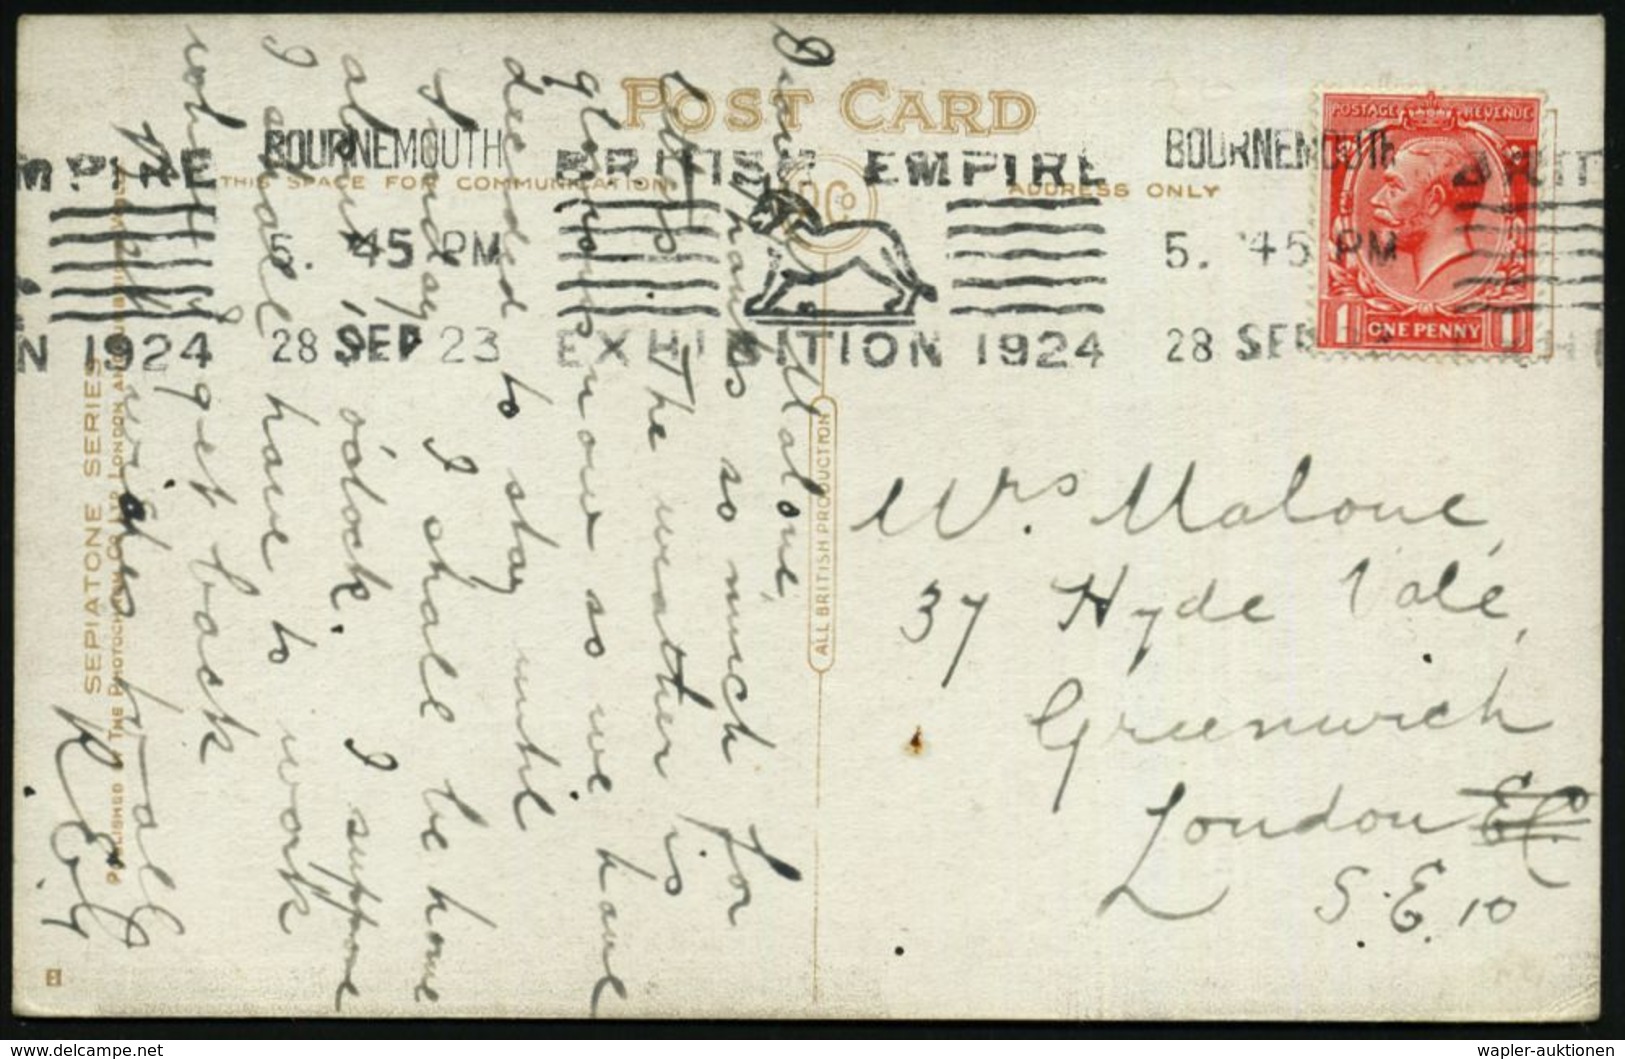 POST CARD
THIS SPACE FOR COMMUNICATION
ADDRESS ONLY
MPIRE
N 1924
BOURNEMOUTH
5. 45 PM
28 SEP 23
BRITISH EMPIRE
EXHIBITION 1924
BOURNEMOUTH
5. 45 PM
28 SEP
BRIT
POSTAGE REVENUE
1 ONE PENNY 1
Dear Mrs Malone,
thanks so much for
The weather is
glorious now so we have
decided to stay until
Sunday I shall be home
about o'clock. I suppose
I shall have to work
when I get back
With wishes to all
R.E.G.
Mrs. Malone,
37 Hyde Vale,
Greenwich
London EC
S.E. 10
ALL BRITISH PRODUCTION
SEPIATONE SERIES
PUBLISHED BY THE PHOTOCHROM CO LTD LONDON AND
wapler-auktionen